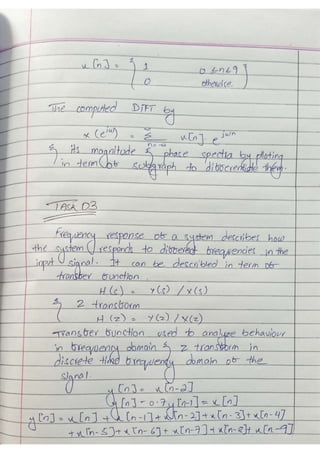 x[n] = { 1 0≤n≤9
0 otherwise. }
The computed DTFT by
x(e^jω) = Σ n=-∞ ∞ x[n] e^jωn
& its magnitude & phase spectra by ploting
in term of subgraph to them.
TASK 03
Frequency response of a system describes how
the system responds to different frequencies in the
input signal. It can be described in term of
transfer function.
H(s) = Y(s) / X(s)
& Z transform
H(z) = Y(z) / X(z)
Transfer function used to analyze behaviour
in frequency domain & Z transform in
discrete time frequency domain of the
signal.
y[n] = x[n-2]
y[n] - 0.7y[n-1] = x[n]
y[n] = x[n] + x[n-1] + x[n-2] + x[n-3] + x[n-4]
+ x[n-5] + x[n-6] + x[n-7] + x[n-8] + x[n-9]